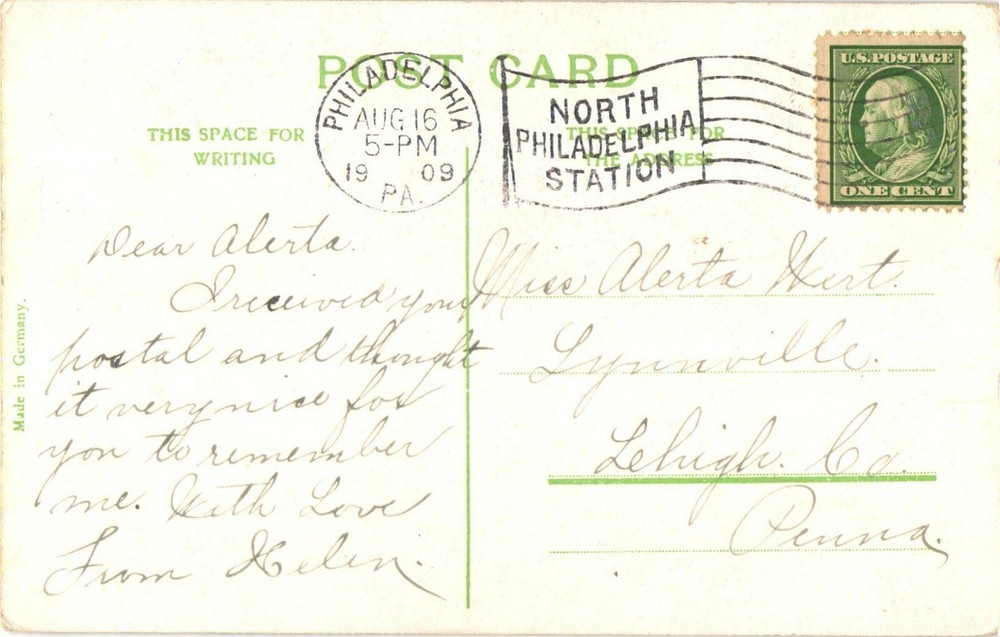 POST CARD
THIS SPACE FOR
WRITING
THIS SPACE FOR
THE ADDRESS
PHILADELPHIA
AUG 16
5-PM
19 09
PA.
NORTH
PHILADELPHIA
STATION
U.S. POSTAGE
ONE CENT
Made in Germany.
Dear Alerta.
I received your
postal and thought
it very nice for
you to remember
me. With Love
From Helen.
Miss Alerta Wert.
Lynnville.
Lehigh. Co.
Penna.